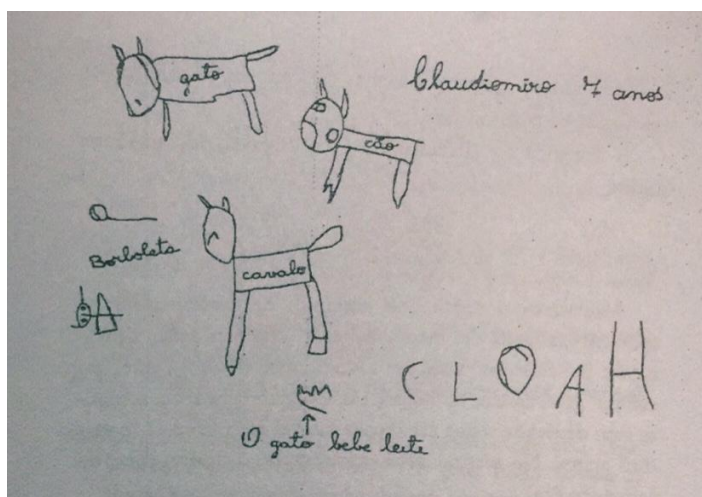 gato
Claudiomiro 7 anos
cão
Borboleta
cavalo
CLOAH
O gato bebe leite